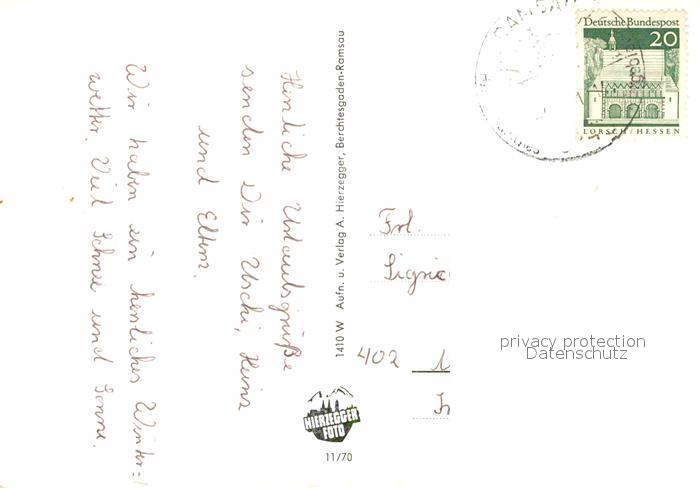 Herzliche Urlaubsgrüße
senden Dir Uschi, Heinz
und Eltern.
Wir haben ein herrliches Winter=
wetter. Viel Schnee und Sonne.
1410 W Aufn. u. Verlag A. Hierzegger, Berchtesgaden-Ramsau
HIERZEGGER
FOTO
11/70
RAMSAU
Deutsche Bundespost
20
LORSCH/HESSEN
Frl.
402
privacy protection
Datenschutz